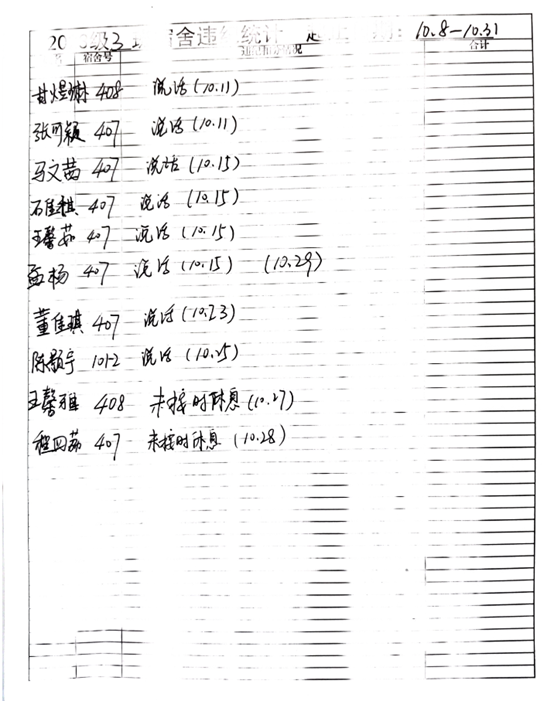 20 级3 宿舍违 统计 10.8-10.31
宿舍号 违纪情况 合计
甘煜琳 408 说话(10.11)
张可颖 407 说话(10.11)
马文茜 407 说话(10.15)
石佳祺 407 说话(10.15)
王馨茹 407 说话(10.15)
孟杨 407 说话(10.15) (10.29)
董佳琪 407 说话(10.23)
陈颢宇 1012 说话(10.25)
王馨雅 408 未按时休息(10.27)
程 茹 407 未按时休息(10.28)